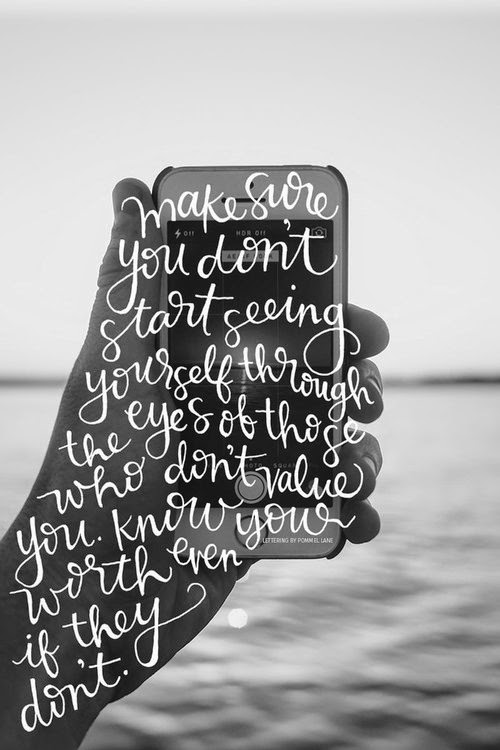 make sure
Off
HDR Off
you don't
start seeing
yourself through
the eyes of those
who don't value
you. know your
LETTERING BY POMMEL LANE
worth even
if they
don't.